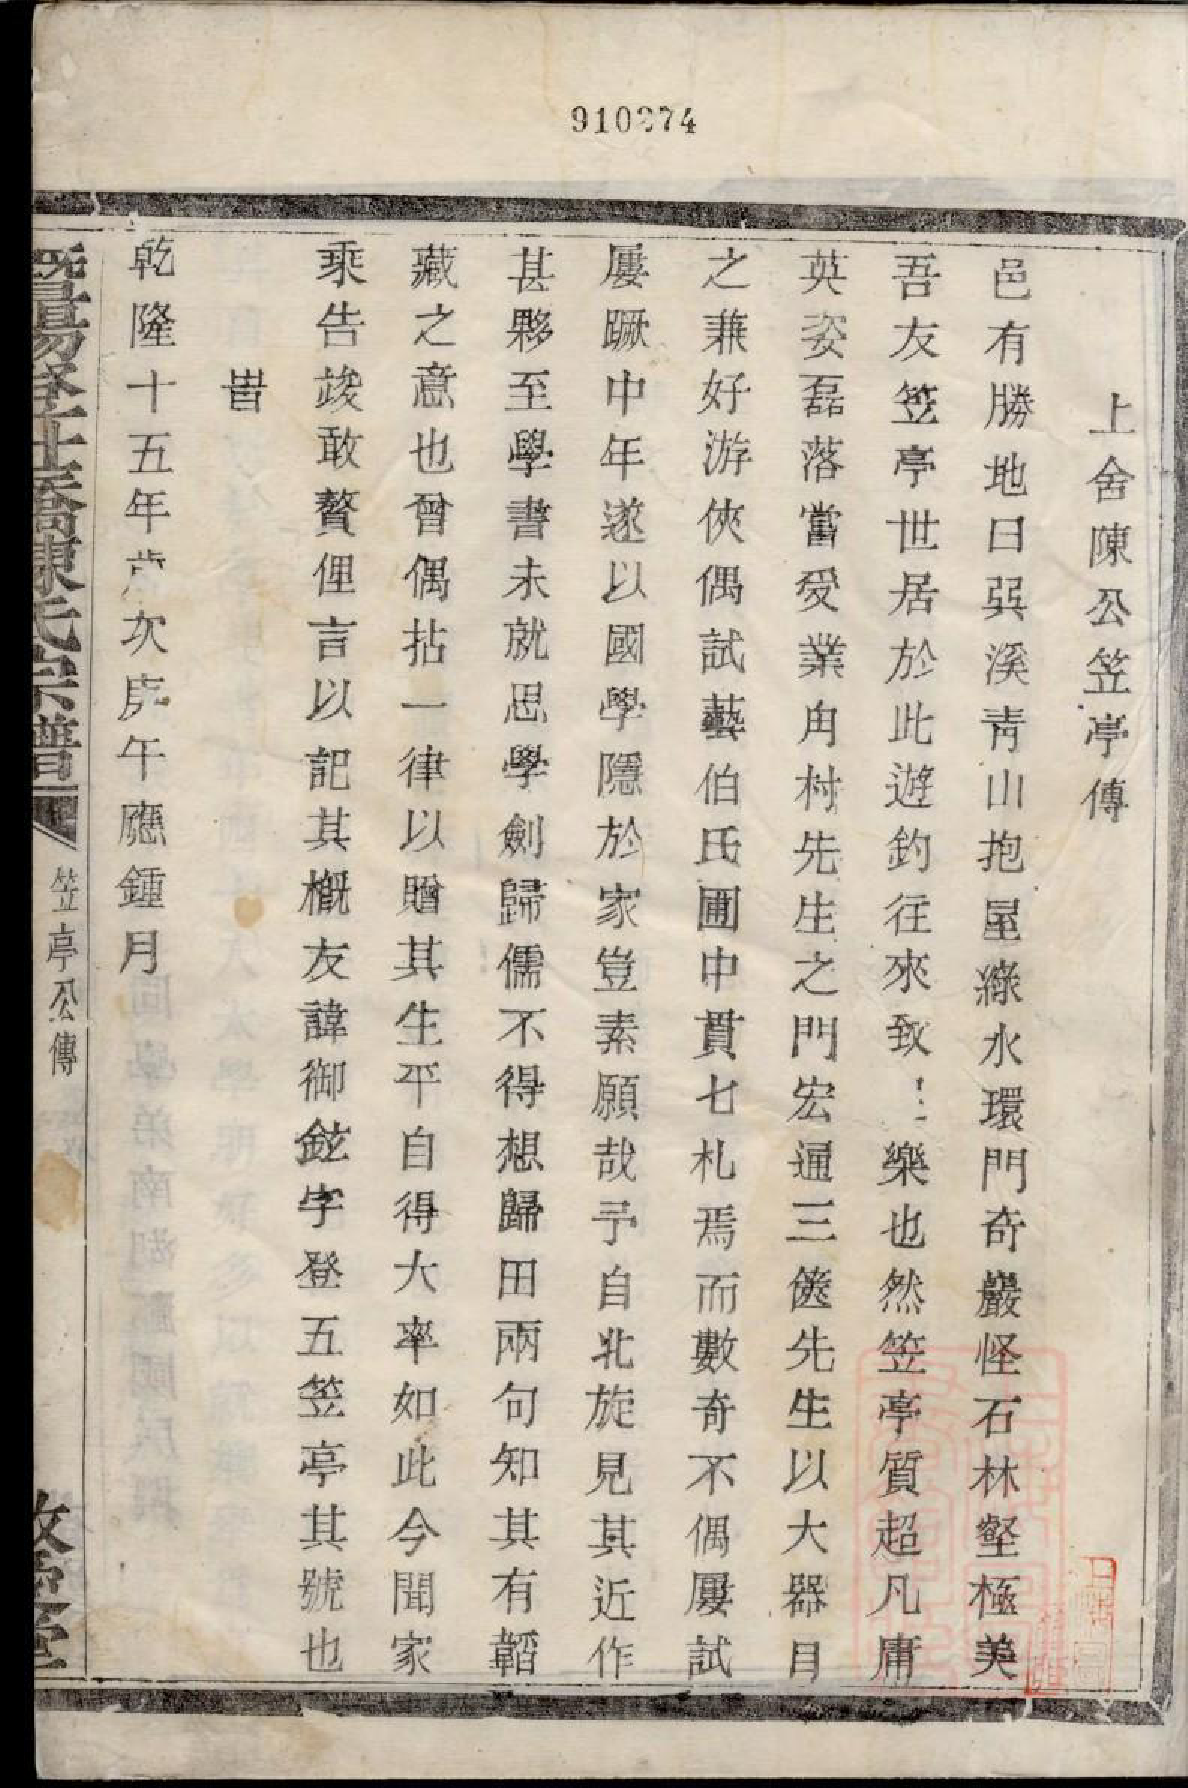 910274
上舍陳公笠亭傳
邑有勝地曰巽溪青山抱屋綠水環門奇巖怪石林壑極美
吾友笠亭世居於此遊釣往來致樂也然笠亭質超凡庸
英姿磊落嘗受業角村先生之門宏通三篋先生以大器目
之兼好游俠偶試藝伯氏圃中貫七札焉而數奇不偶屢試
屢蹶中年遂以國學隱於家豈素願哉予自北旋見其近作
甚夥至學書未就思學劍歸儒不得想歸田兩句知其有韜
藏之意也曾偶拈一律以贈其生平自得大率如此今聞家
乘告竣敢贅俚言以記其概友諱御鉉字登五笠亭其號也
旹
乾隆十五年歲次庚午應鍾月
暨陽
橋陳氏宗譜
笠亭公傳